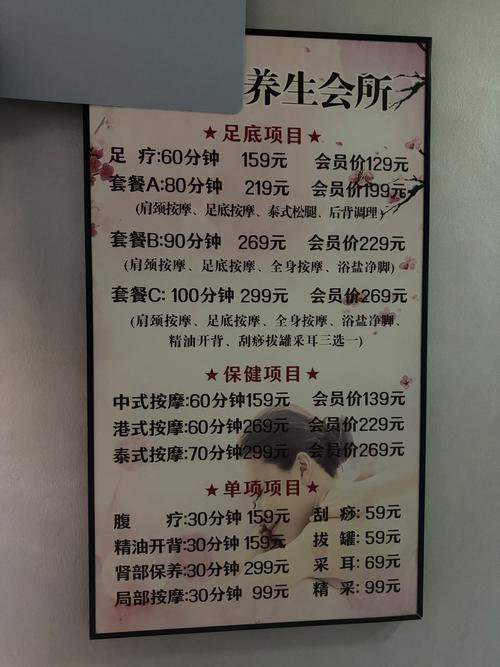 养生会所
★足底项目★
足 疗:60分钟 159元 会员价129元
套餐A:80分钟 219元 会员价199元
(肩颈按摩、足底按摩、泰式松腿、后背调理)
套餐B:90分钟 269元 会员价229元
(肩颈按摩、足底按摩、全身按摩、浴盐净脚)
套餐C: 100分钟 299元 会员价269元
(肩颈按摩、足底按摩、全身按摩、浴盐净脚、
精油开背、刮痧拔罐采耳三选一)
★保健项目★
中式按摩:60分钟159元 会员价139元
港式按摩:60分钟269元 会员价229元
泰式按摩:70分钟299元 会员价269元
★单项项目★
腹 疗:30分钟 159元 刮 痧: 59元
精油开背:30分钟 159元 拔 罐: 59元
肾部保养:30分钟 299元 采 耳: 69元
局部按摩:30分钟 99元 精 采: 99元